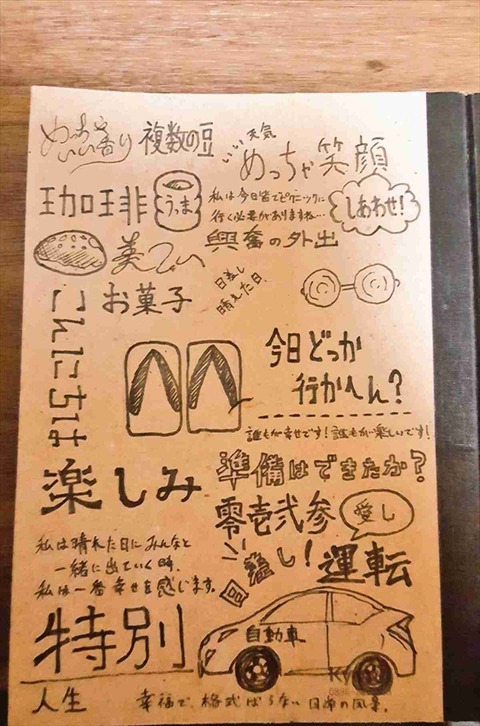 めっちゃ
いい香り
複数の豆
いい天気
めっちゃ笑顔
珈琲
うっま
私は今日皆でピクニックに
行く必要がありますね…
しあわせ!
興奮の外出
美しい
お菓子
日差し
晴れた日
こんにちは
今日どっか
行かへん?
誰もが幸せです!誰もが楽しいです!
楽しみ
準備はできたか?
零壱弐参
愛し
私は晴れた日にみんなと
一緒に出ていく時、
私は一番幸せを感じます。
し!
運転
特別
自動車
人生
幸福で、格式ばらない日常の風景。